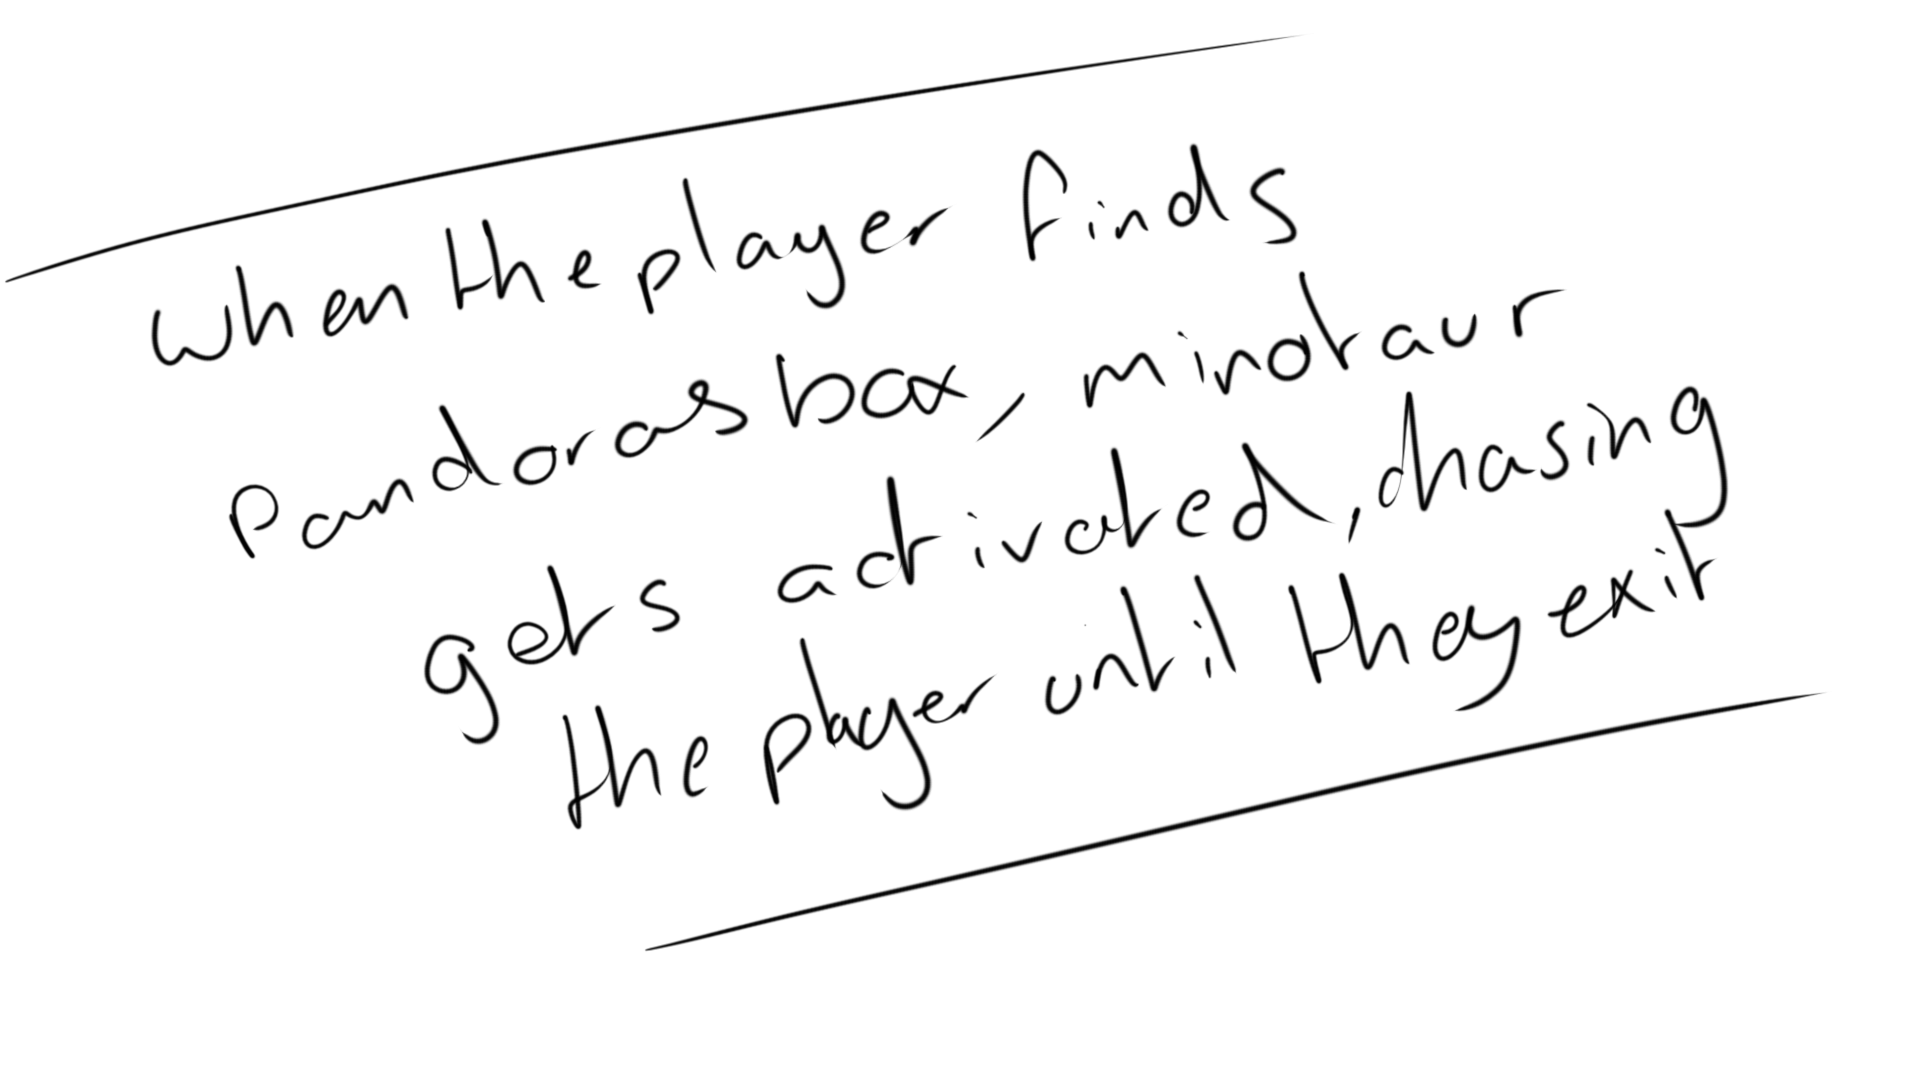 when the player finds
Pandoras box, minotaur
gets activated, chasing
the player until they exit